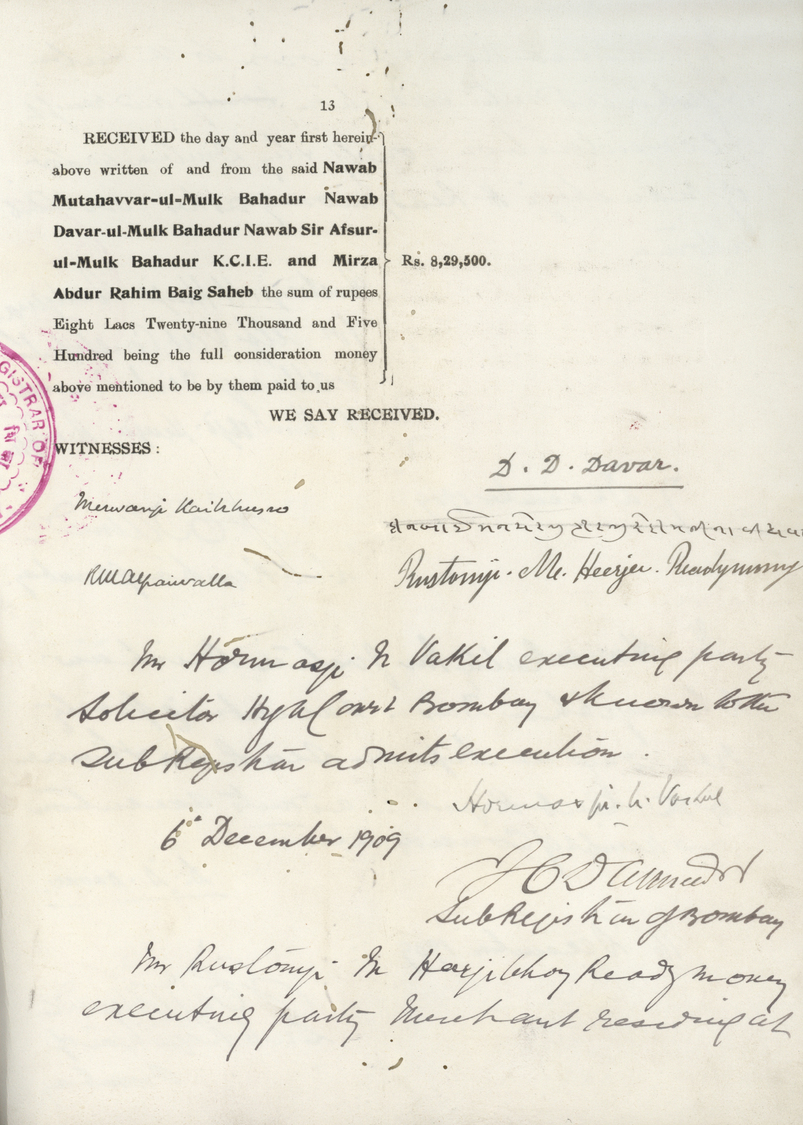 13
RECEIVED the day and year first herein-
above written of and from the said Nawab
Mutahavvar-ul-Mulk Bahadur Nawab
Davar-ul-Mulk Bahadur Nawab Sir Afsur-
ul-Mulk Bahadur K.C.I.E. and Mirza
Abdur Rahim Baig Saheb the sum of rupees
Eight Lacs Twenty-nine Thousand and Five
Hundred being the full consideration money
above mentioned to be by them paid to us
Rs. 8,29,500.
WE SAY RECEIVED.
WITNESSES :
D. D. Davar.
Merwanji Kaikhusro
Rustomji. M. Heerjee. Readymoney
Mr Hormasji N Vakil executing party
Solicitor High Court Bombay & known to the
Sub Registrar admits execution.
Hormasji. N. Vakil
6th December 1909
Sub Registrar of Bombay
Mr Rustomji M Heerjibhoy Readymoney
executing party Merchant residing at
GISTRAR OF